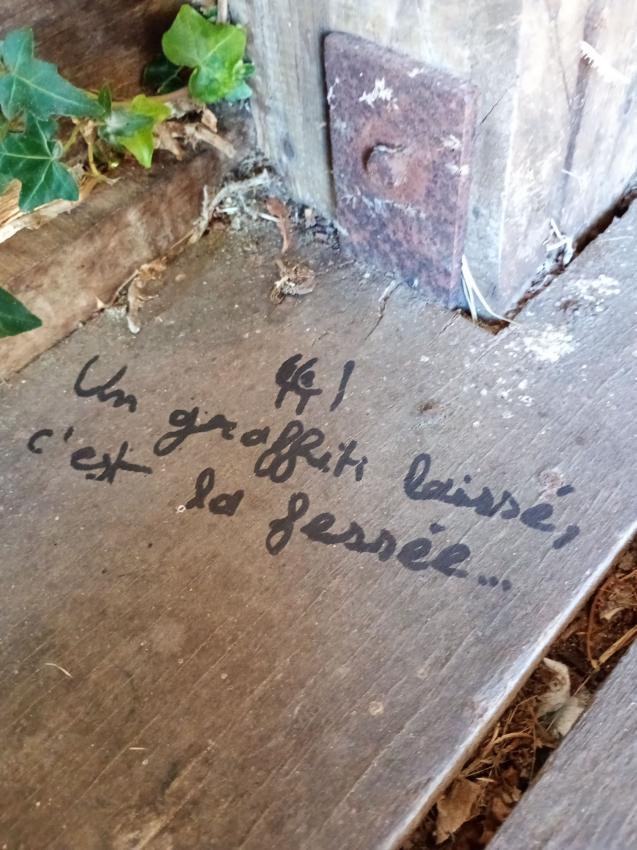 Un graffiti laissé,
c'est la fessée...